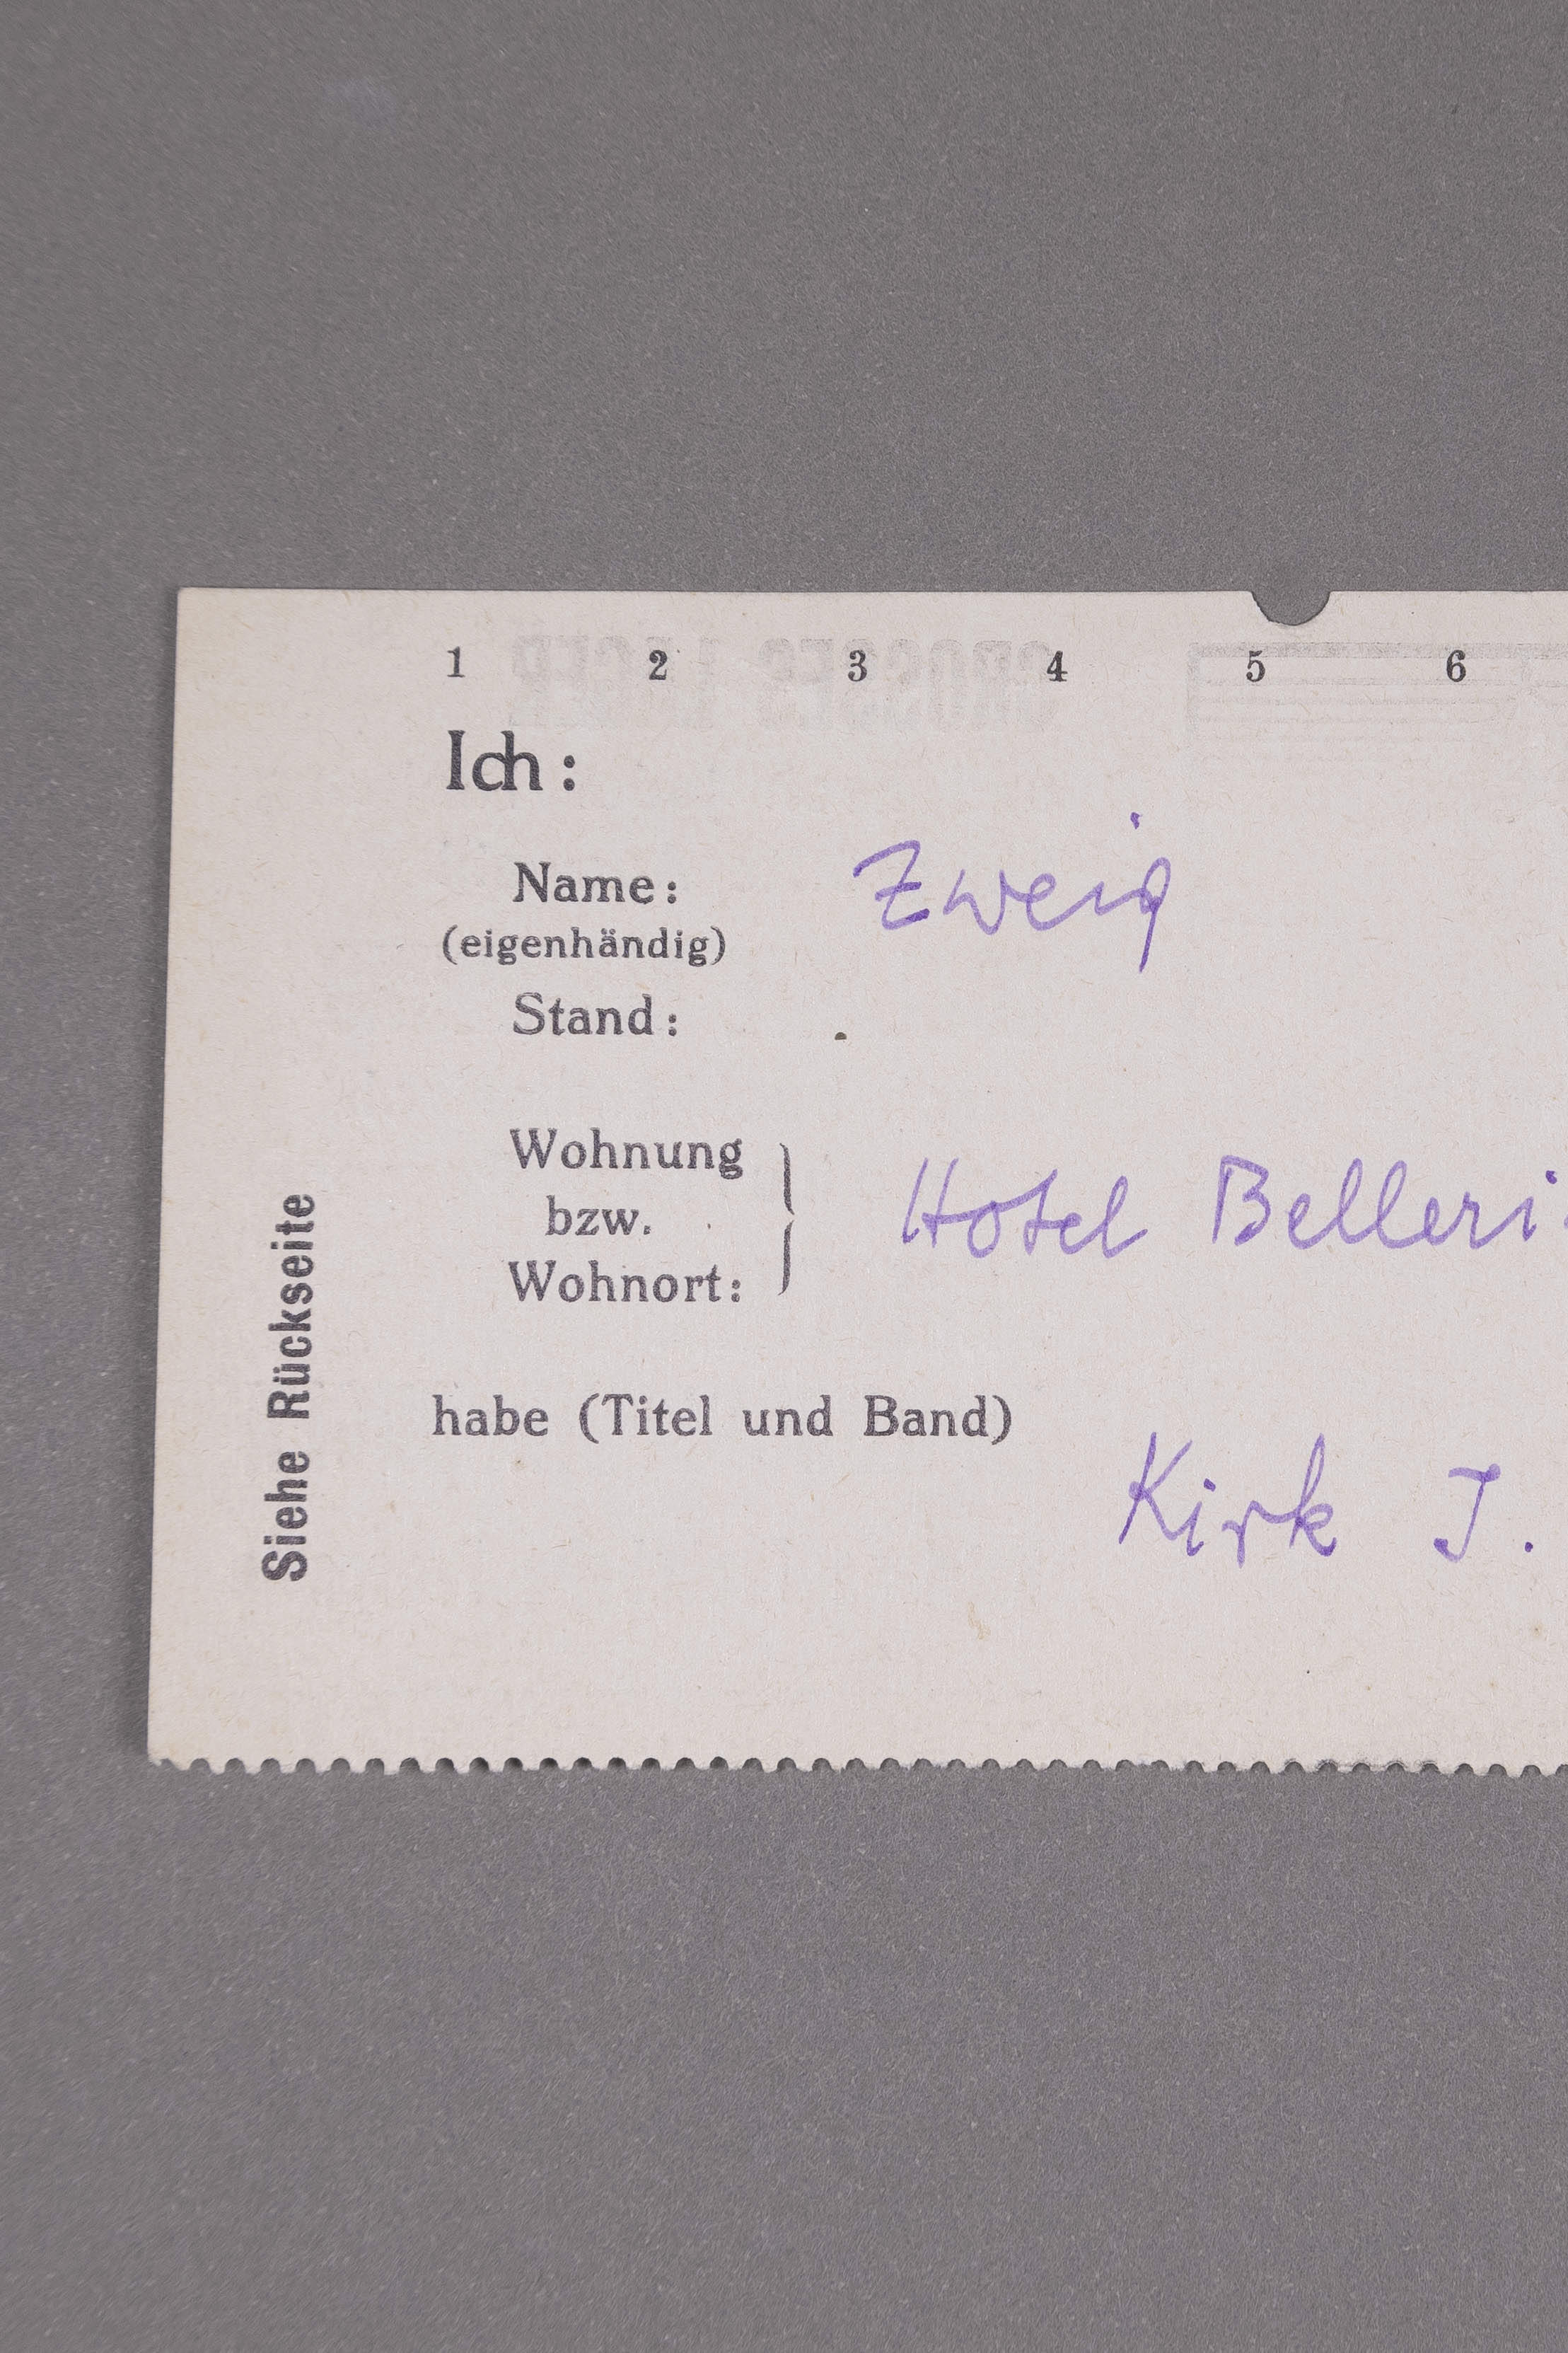 1 2 3 4 5 6
Ich:
Name: Zweig
(eigenhändig)
Stand:
Wohnung
bzw.
Wohnort:
Hotel Belleri
habe (Titel und Band)
Kirk J.
Siehe Rückseite